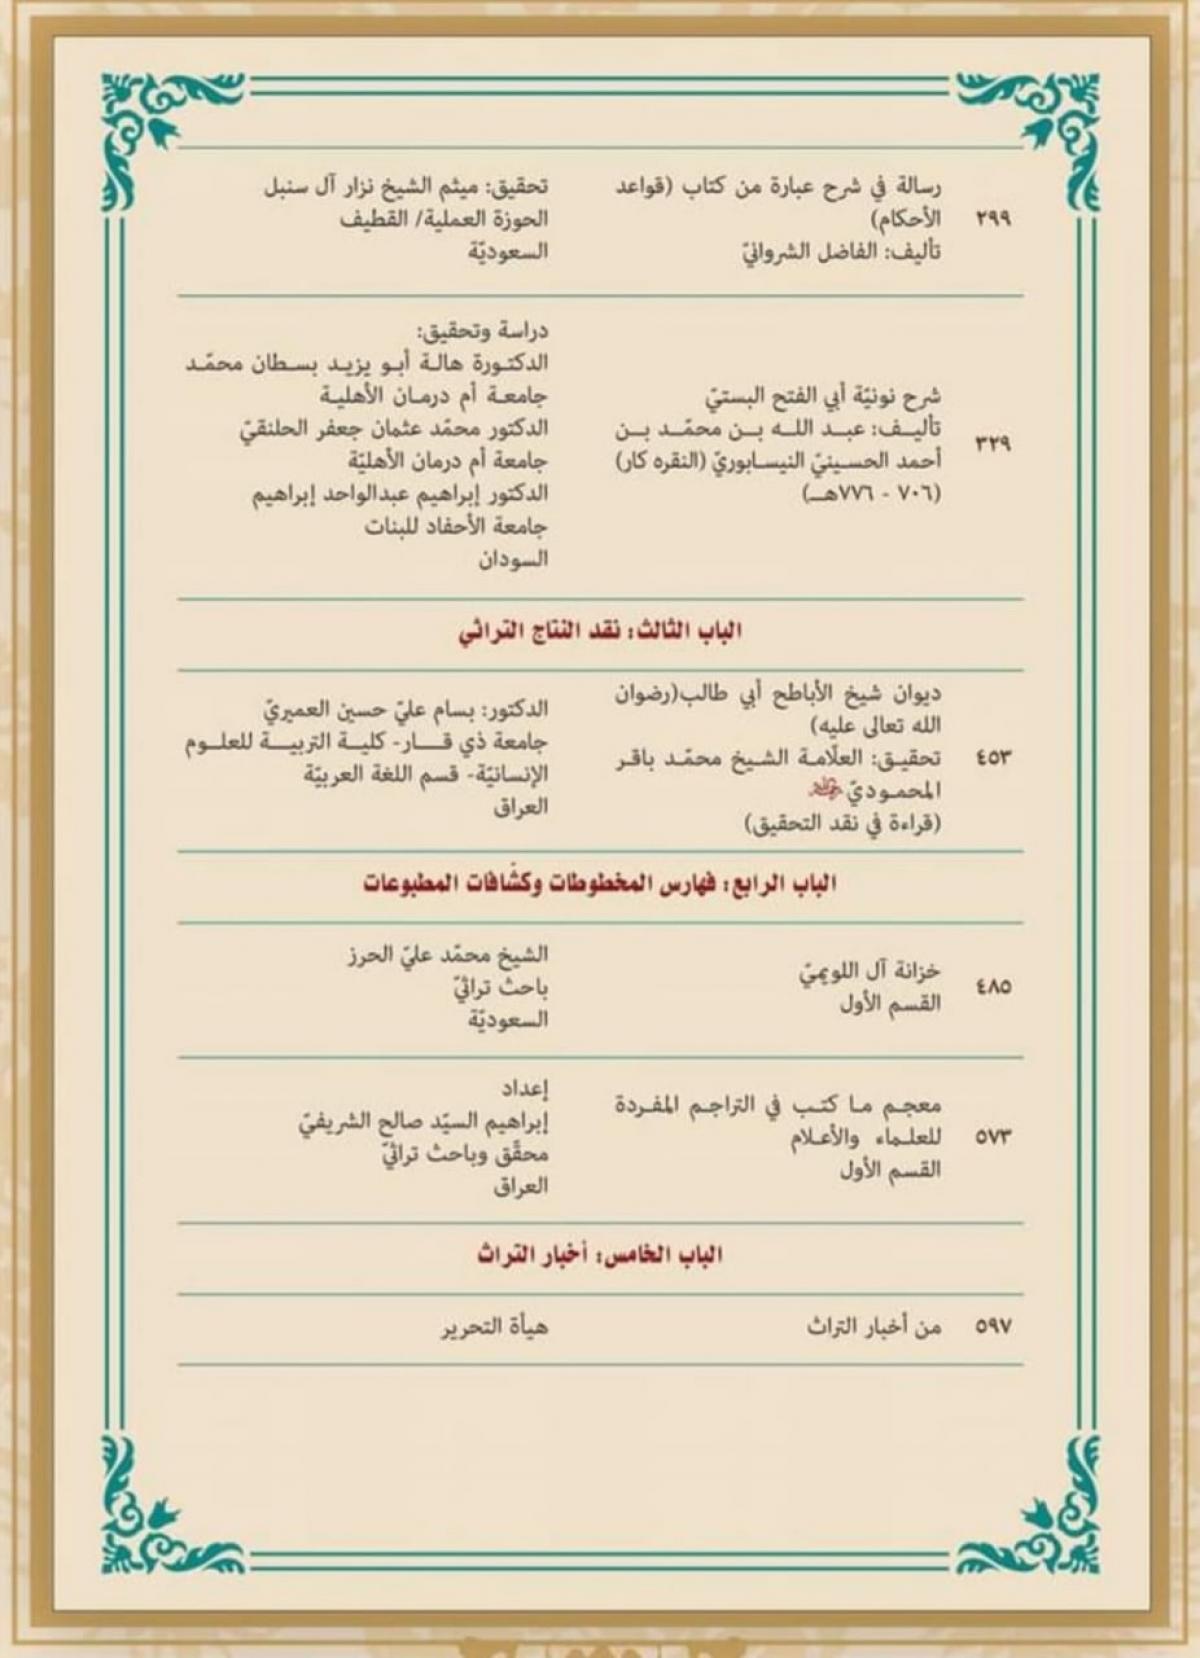 ٢٩٩
رسالة في شرح عبارة من كتاب (قواعد
الأحكام)
تأليف: الفاضل الشروانيّ
تحقيق: ميثم الشيخ نزار آل سنبل
الحوزة العملية/ القطيف
السعوديّة
٣٢٩
شرح نونيّة أبي الفتح البستيّ
تأليف: عبد الله بن محمّد بن
أحمد الحسينيّ النيسابوريّ (النقره كار)
(٧٠٦ - ٧٧٦هـ)
دراسة وتحقيق:
الدكتورة هالة أبو يزيد بسطان محمّد
جامعة أم درمان الأهلية
الدكتور محمّد عثمان جعفر الحلنقيّ
جامعة أم درمان الأهليّة
الدكتور إبراهيم عبدالواحد إبراهيم
جامعة الأحفاد للبنات
السودان
الباب الثالث: نقد النتاج التراثي
٤٥٣
ديوان شيخ الأباطح أبي طالب(رضوان
الله تعالى عليه)
تحقيق: العلّامة الشيخ محمّد باقر
المحموديّ
(قراءة في نقد التحقيق)
الدكتور: بسام عليّ حسين العميريّ
جامعة ذي قار- كلية التربية للعلوم
الإنسانيّة- قسم اللغة العربيّة
العراق
الباب الرابع: فهارس المخطوطات وكشّافات المطبوعات
٤٨٥
خزانة آل اللويميّ
القسم الأول
الشيخ محمّد عليّ الحرز
باحث تراثيّ
السعوديّة
٥٧٣
معجم ما كتب في التراجم المفردة
للعلماء والأعلام
القسم الأول
إعداد
إبراهيم السيّد صالح الشريفيّ
محقّق وباحث تراثيّ
العراق
الباب الخامس: أخبار التراث
٥٩٧
من أخبار التراث
هيأة التحرير